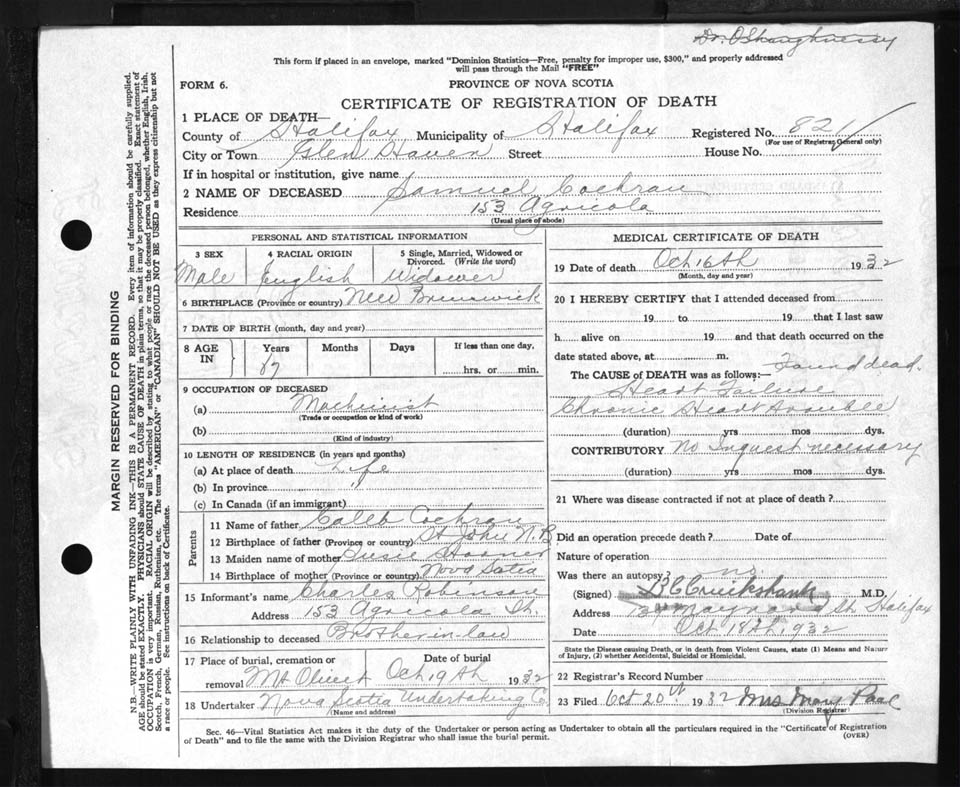 Dr. O'Shaughnessy
This form if placed in an envelope, marked "Dominion Statistics—Free, penalty for improper use, $300," and properly addressed
will pass through the Mail "FREE"
FORM 6.
PROVINCE OF NOVA SCOTIA
CERTIFICATE OF REGISTRATION OF DEATH
1 PLACE OF DEATH—
County of Halifax Municipality of Halifax Registered No. 821
(For use of Registrar General only)
City or Town Glen Haven Street House No.
If in hospital or institution, give name
2 NAME OF DECEASED Samuel Cochran
Residence 153 Agricola
(Usual place of abode)
PERSONAL AND STATISTICAL INFORMATION
3 SEX 4 RACIAL ORIGIN 5 Single, Married, Widowed or
Divorced. (Write the word)
Male English Widower
6 BIRTHPLACE (Province or country) New Brunswick
7 DATE OF BIRTH (month, day and year)
8 AGE IN Years Months Days If less than one day,
87 hrs. or min.
9 OCCUPATION OF DECEASED
(a) Machinist
(Trade or occupation or kind of work)
(b)
(Kind of industry)
10 LENGTH OF RESIDENCE (in years and months)
(a) At place of death Life
(b) In province "
(c) In Canada (if an immigrant)
Parents
11 Name of father Caleb Cochran
12 Birthplace of father (Province or country) St John N.B.
13 Maiden name of mother Susie
14 Birthplace of mother (Province or country) Nova Scotia
15 Informant's name Charles Robinson
Address 153 Agricola St.
16 Relationship to deceased Brother in-law
17 Place of burial, cremation or removal Date of burial
Mt Olivet Oct 19th 1932
18 Undertaker Nova Scotia Undertaking Co
(Name and address)
MEDICAL CERTIFICATE OF DEATH
19 Date of death Oct 16th 1932
(Month, day and year)
20 I HEREBY CERTIFY that I attended deceased from
19 to 19 that I last saw
h alive on 19 and that death occurred on the
date stated above, at m.
The CAUSE of DEATH was as follows:— Found dead.
Heart Failure
Chronic Heart trouble
(duration) yrs mos dys.
CONTRIBUTORY No Inquest necessary
(duration) yrs mos dys.
21 Where was disease contracted if not at place of death?
Did an operation precede death? Date of
Nature of operation
Was there an autopsy? no.
(Signed) Cruikshank M.D.
Address Maynard St Halifax
Date Oct 18th, 1932
State the Disease causing Death, or in death from Violent Causes, state (1) Means and Nature
of Injury, (2) whether Accidental, Suicidal or Homicidal.
22 Registrar's Record Number
23 Filed Oct 20th 1932 Mrs Mary
(Division Registrar)
Sec. 46—Vital Statistics Act makes it the duty of the Undertaker or person acting as Undertaker to obtain all the particulars required in the "Certificate of Registration
of Death" and to file the same with the Division Registrar who shall issue the burial permit. (OVER)
MARGIN RESERVED FOR BINDING
N.B.—WRITE PLAINLY WITH UNFADING INK—THIS IS A PERMANENT RECORD. Every item of information should be carefully supplied.
AGE should be stated EXACTLY. PHYSICIANS should STATE CAUSE OF DEATH in plain terms, so that it may be properly classified. Exact statement of
OCCUPATION is very important. RACIAL ORIGIN will be described by stating to what people or race the deceased person belonged, whether English, Irish,
Scotch, French, German, Russian, Ruthenian, etc. The terms "AMERICAN" or "CANADIAN" SHOULD NOT BE USED as they express citizenship but not
a race or people. See instructions on back of Certificate.